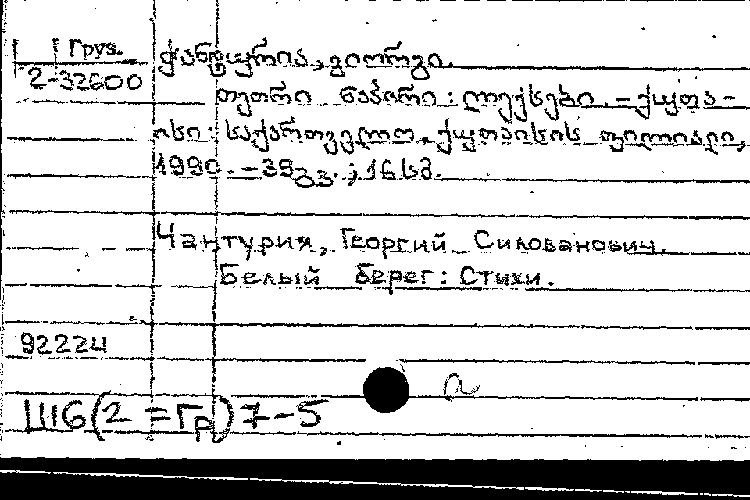 Груз.
2-32600
ჭანტურია, გიორგი.
თეთრი ნაპირი: ლექსები. – ქუთა-
ისი: საქართველო, ქუთაისის ფილიალი,
1990. – 39გვ. ; 16სმ.
Чантурия, Георгий Силованович.
Белый берег: Стихи.
92224
Ш6(2=Гр)7-5
a